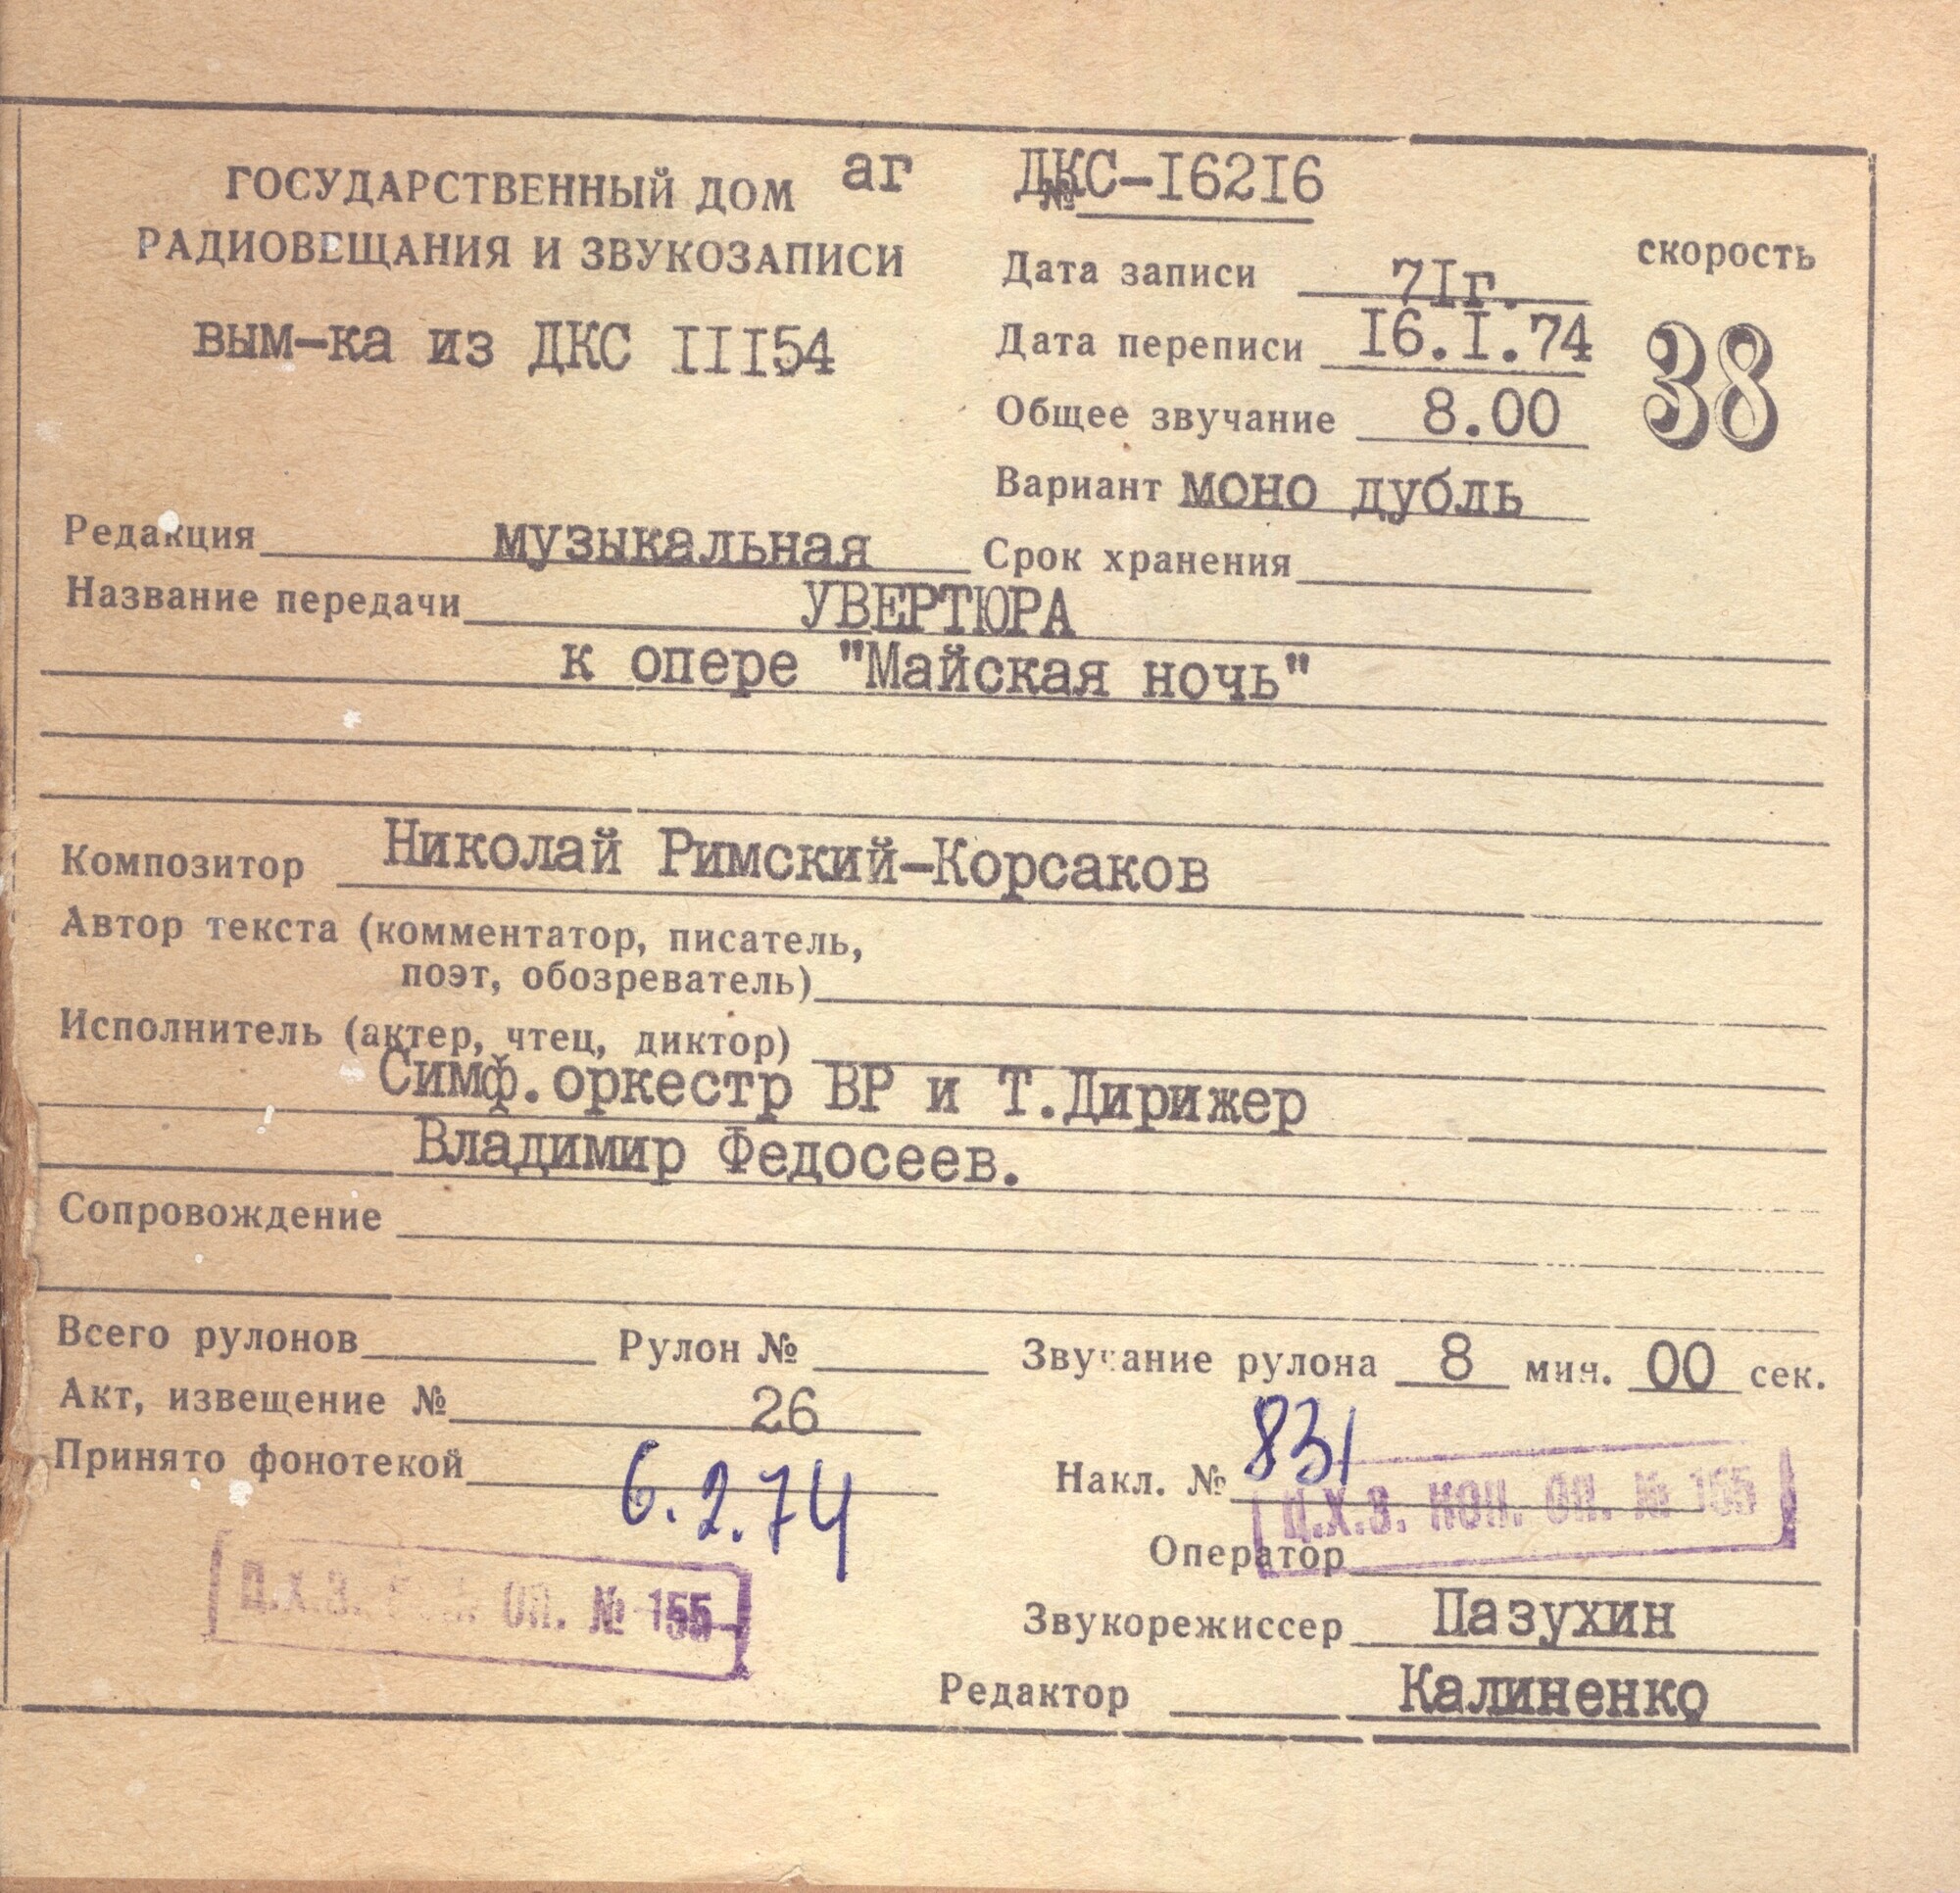 ГОСУДАРСТВЕННЫЙ ДОМ аг
РАДИОВЕЩАНИЯ И ЗВУКОЗАПИСИ
вым-ка из ДКС III54
№ ДКС-I62I6
Дата записи 7Iг.
Дата переписи I6.I.74
Общее звучание 8.00
Вариант моно дубль
скорость
38
Редакция музыкальная Срок хранения
Название передачи УВЕРТЮРА
к опере "Майская ночь"
Композитор Николай Римский-Корсаков
Автор текста (комментатор, писатель,
поэт, обозреватель)
Исполнитель (актер, чтец, диктор)
Симф.оркестр ВР и Т.Дирижер
Владимир Федосеев.
Сопровождение
Всего рулонов Рулон № Звучание рулона 8 мин. 00 сек.
Акт, извещение № 26
Принято фонотекой 6.2.74
Накл. № 831
Ц.Х.З. КОН. ОП. № 155
Оператор
Ц.Х.З. КОН. ОП. № 155
Звукорежиссер Пазухин
Редактор Калиненко